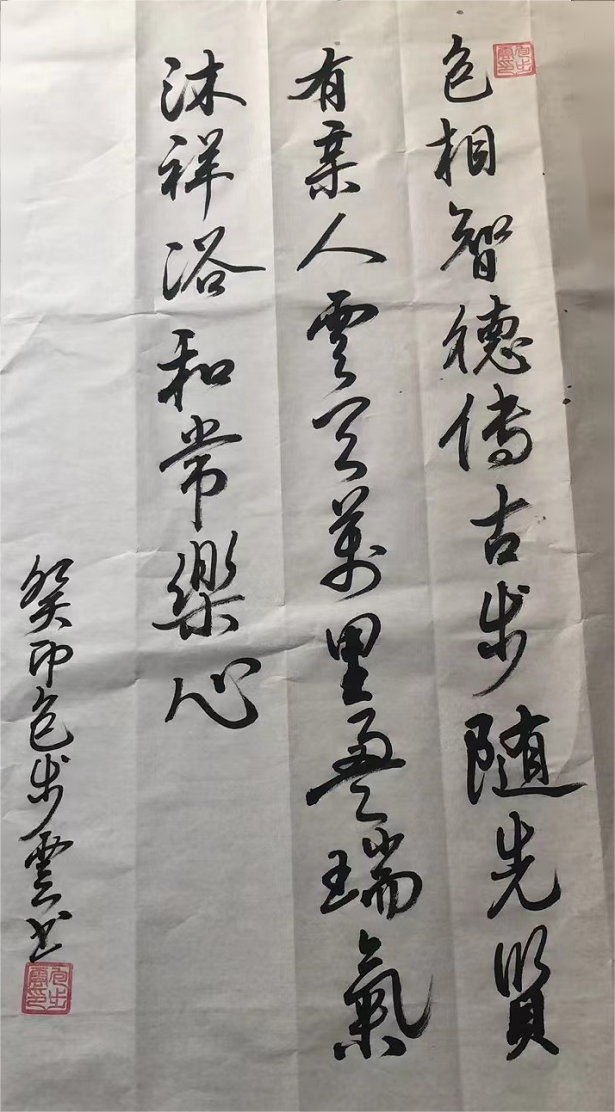 包相智德傳古步隨先賢
有人雲天萬里盈瑞氣
沐祥浴和常樂心
癸卯包步雲书